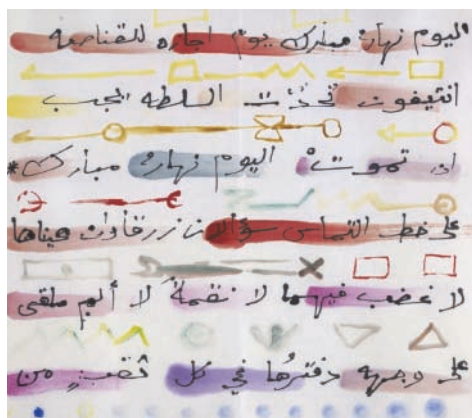 اليوم نهارٌ مباركٌ يوم اجازه للقناصه
انتيغون تحدّت السلطه يجب
ان تموتْ اليوم نهارٌ مباركٌ*
على خط التماس سؤالان زرقاوان عيناها
لا غضب فيهما لا نقمةً لا ألم ملقى
على وجهه دفترُها في كل ثقبٍ من